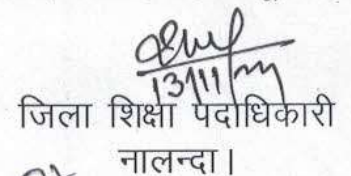 13/11/
जिला शिक्षा पदाधिकारी
नालन्दा।